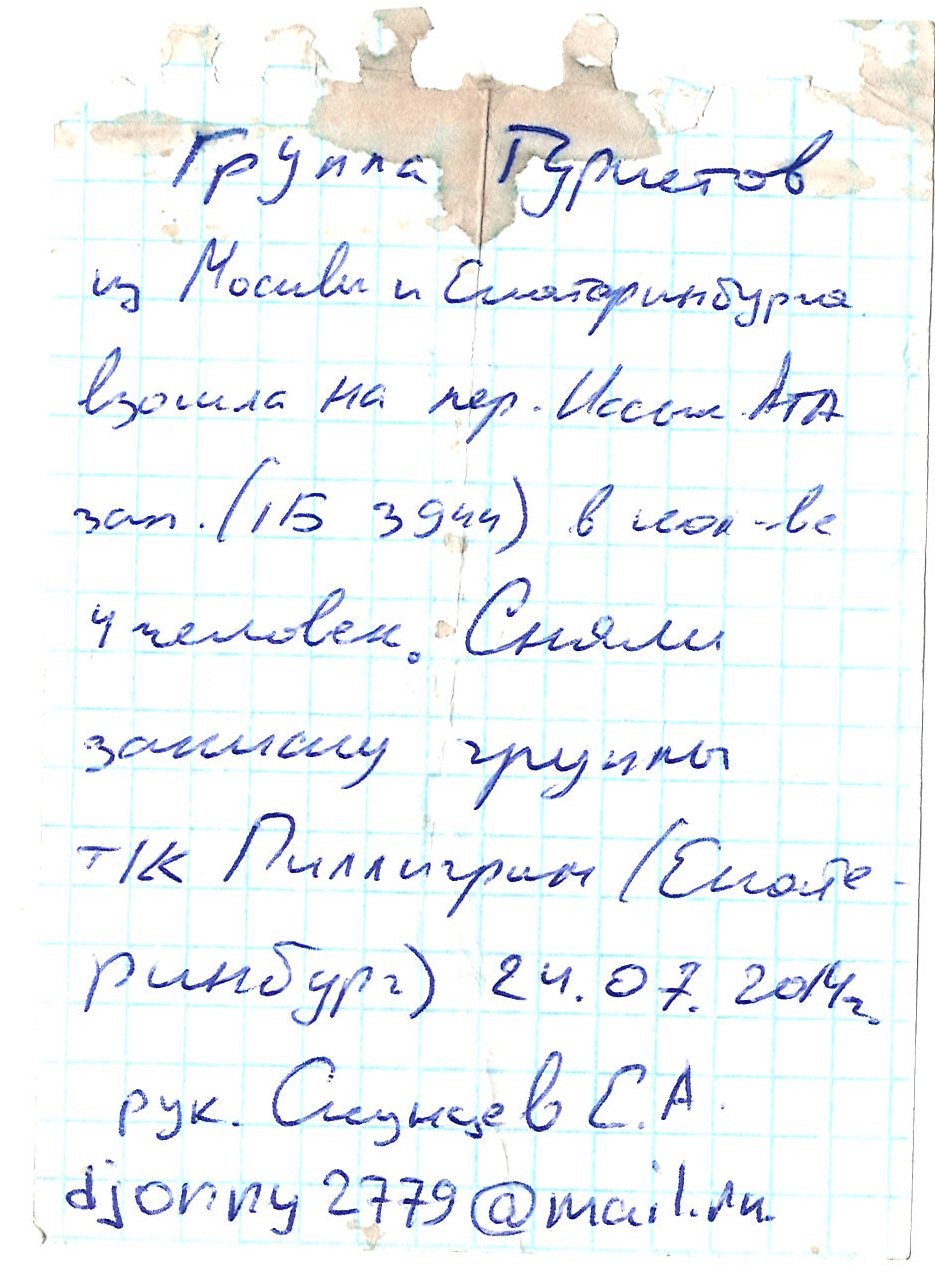 Группа Туристов
из Москвы и Екатеринбурга
взошла на пер. Иссык Ата
зап. (1Б 3944) в кол-ве
4 человек. Сняли
записку группы
т/к Пиллигрим (Екате-
ринбург) 24.07.2014г.
рук. Скунцев Е.А.
djonny2779@mail.ru